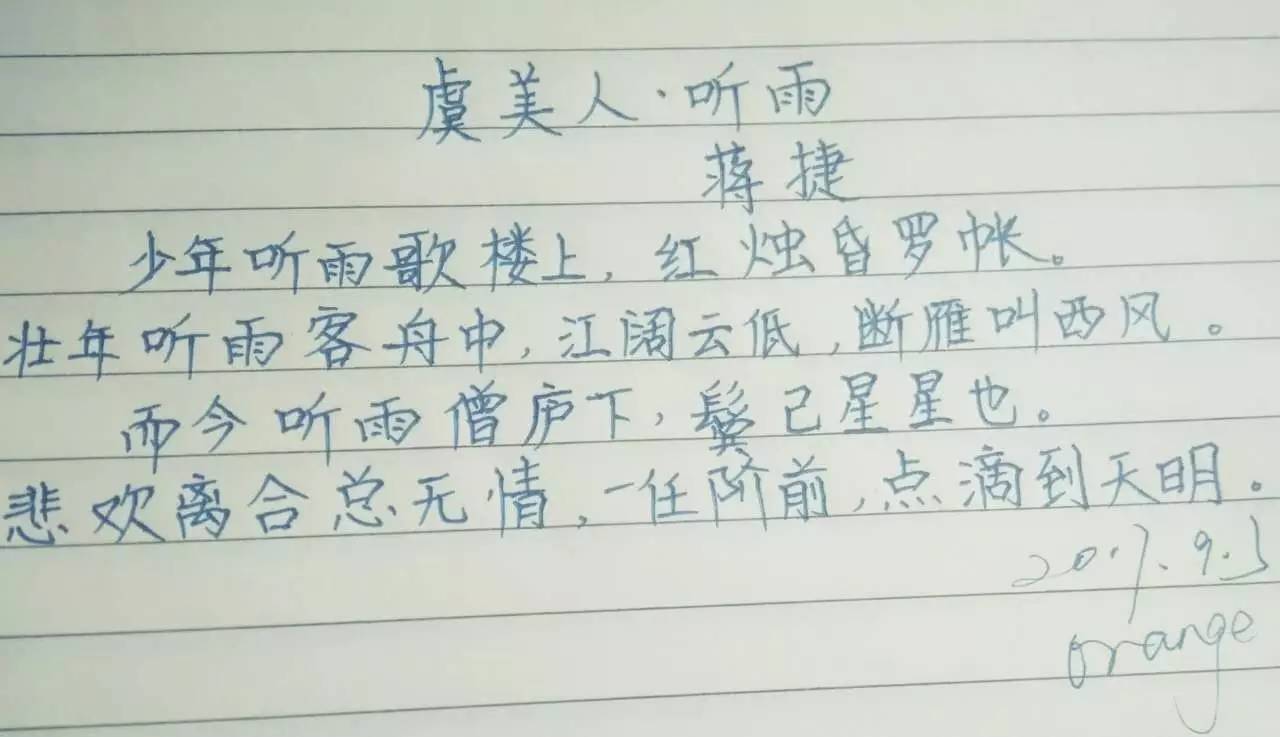 虞美人·听雨
蒋捷
少年听雨歌楼上，红烛昏罗帐。
壮年听雨客舟中，江阔云低，断雁叫西风。
而今听雨僧庐下，鬓已星星也。
悲欢离合总无情，一任阶前，点滴到天明。
2017.9.3
orange